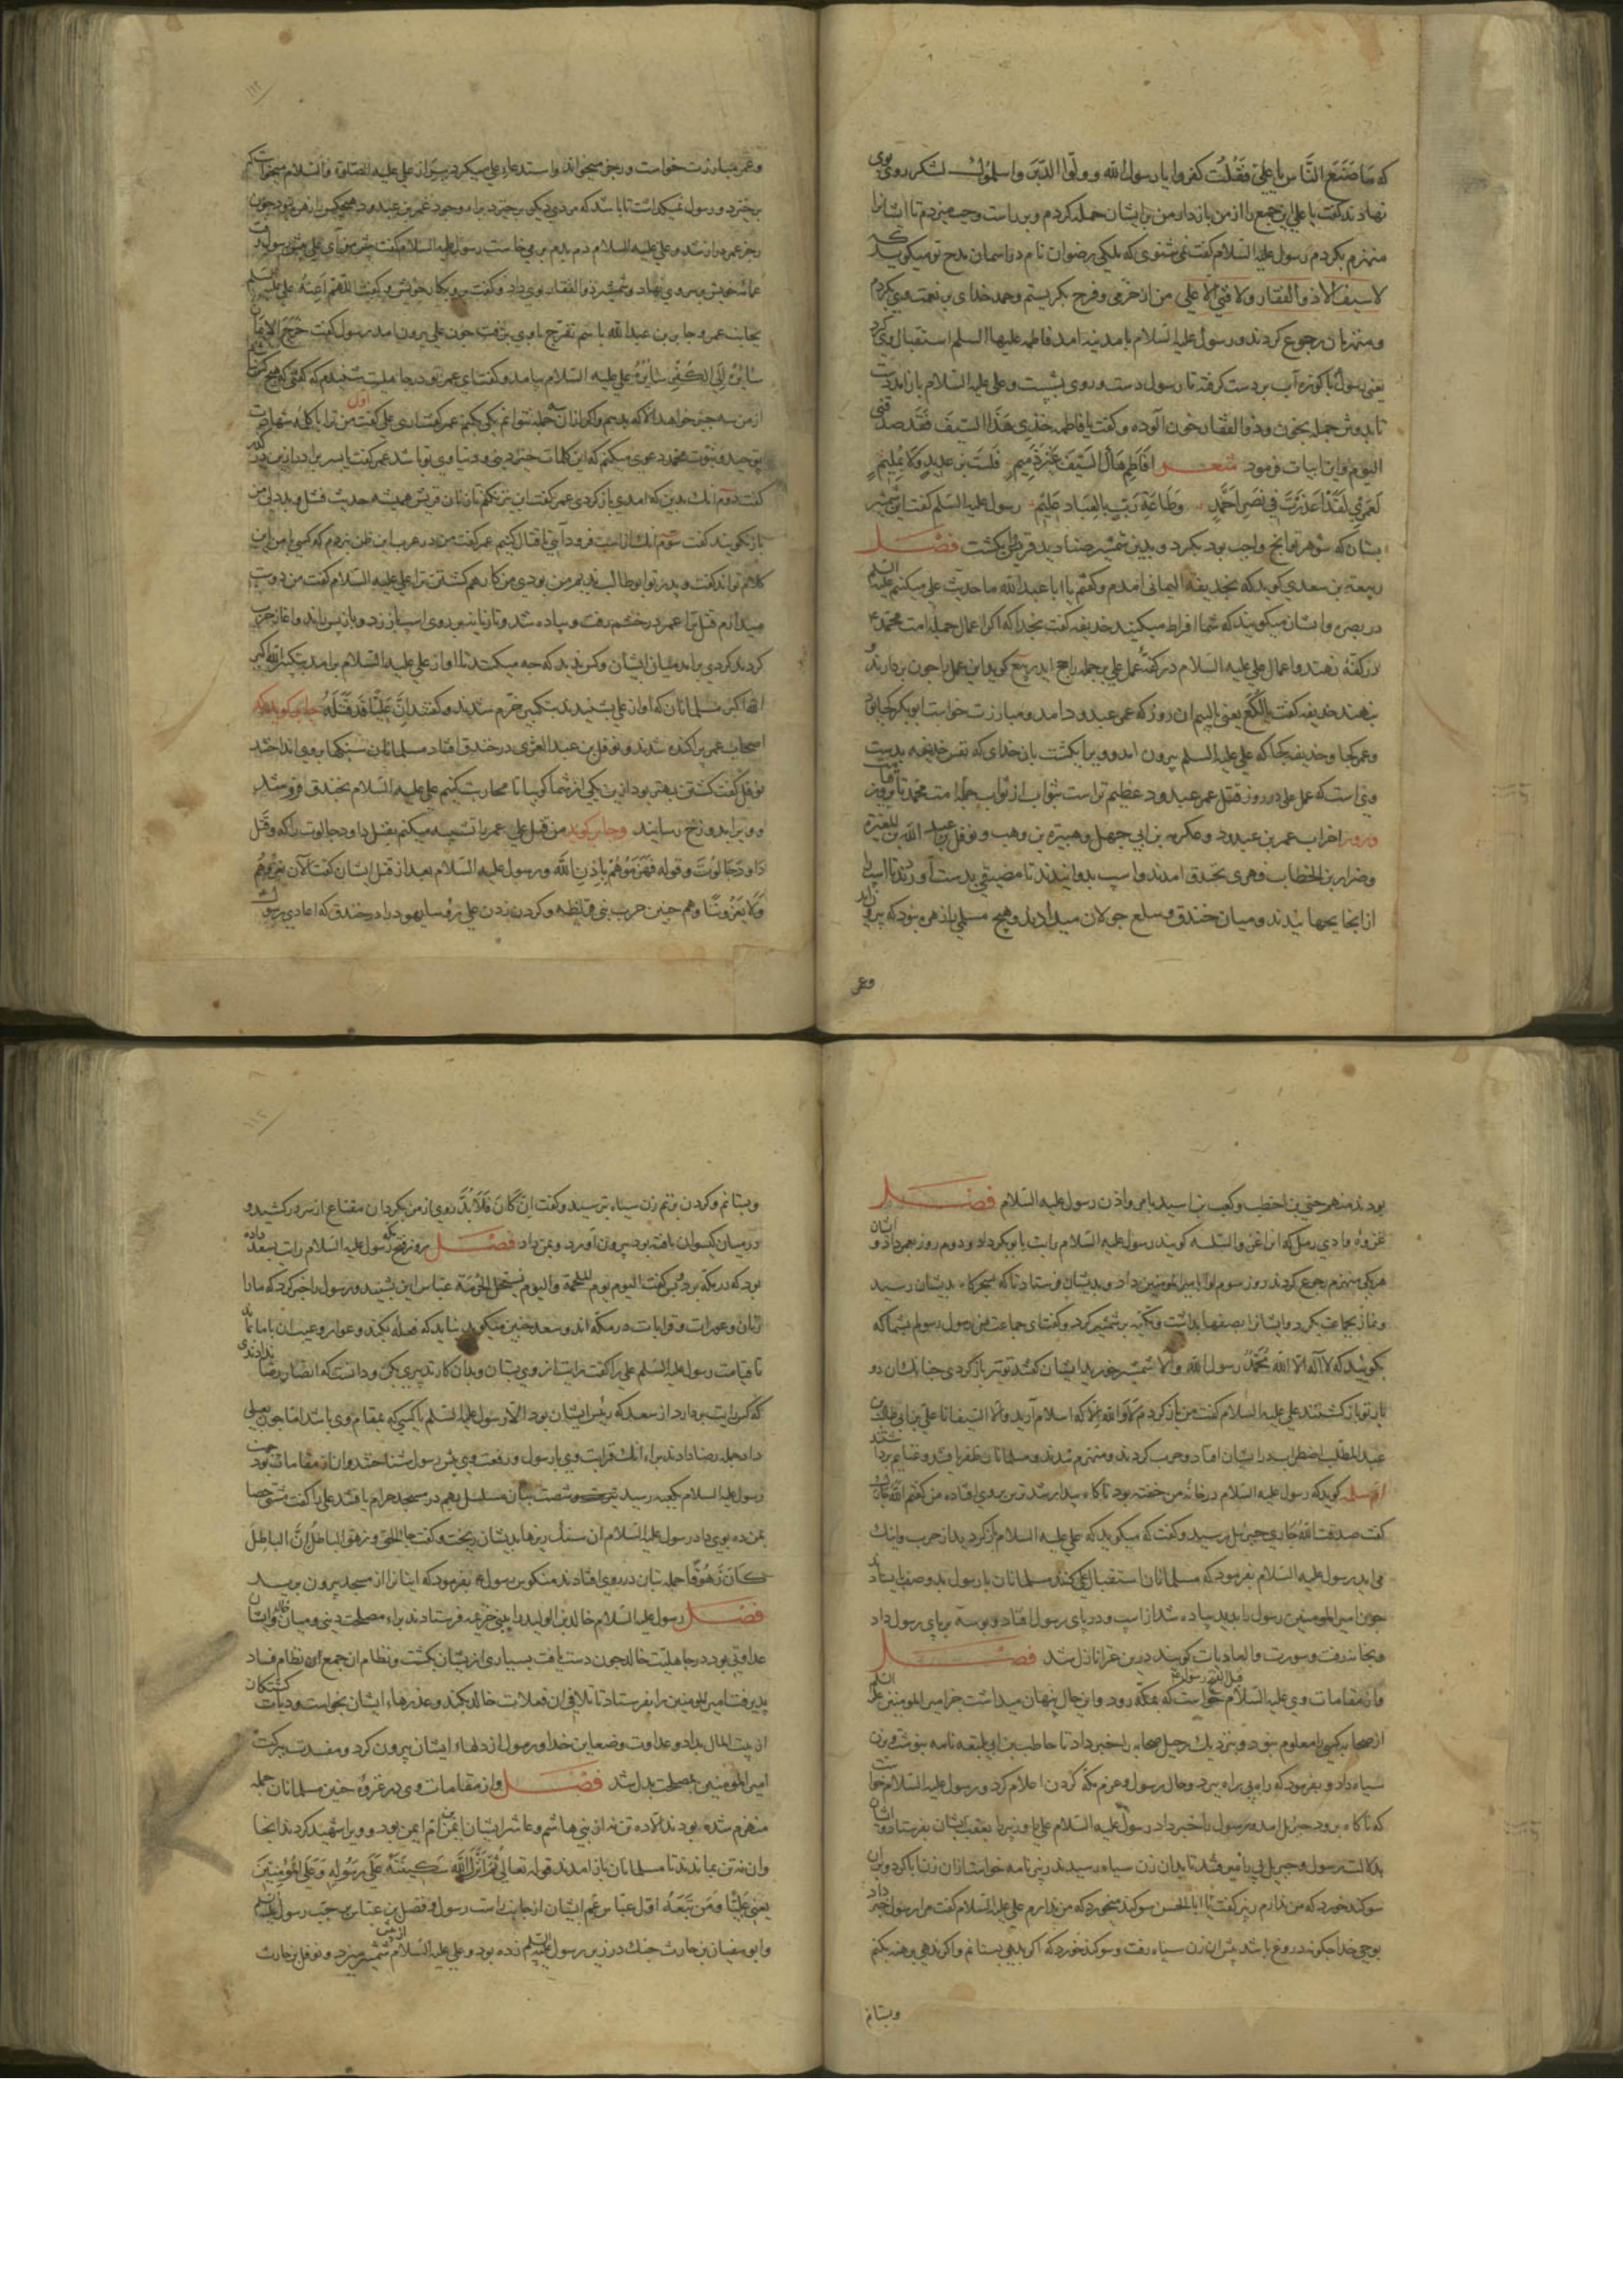 که ما صنع الناس یا علی فقلت کفروا یا رسول الله و ولّوا الدبر واسلموک لشکر روی بوی
نهادند گفت یا علی این جمع را از من بازدار من برایشان حمله کردم و براست و چپ میزدم تا ایشانرا
منهزم بکردم رسول علیه السلام گفت نمی شنوی که ملکی رضوان نام در اسمان مدح تو میکوید که
لا سیف الا ذو الفقار ولا فتی الا علی من از خرمی و فرح بکریستم و حمد خدای برین نعمت می کردم
و منهزمان رجوع کردند و رسول علیه السلام با مدینه امد فاطمه علیها السلم استقبال وی کرد
یعنی رسول با کوزه آب بر دست کرفته تا رسول دست و روی بشست و علی علیه السلام باز امد دست
تا بدوش جمله بخون و ذو الفقار خون آلوده و کفت یا فاطمه خذی هذا السیف فقد صدقنی
الیوم و این ابیات فرمود شعر افاطم هاک السیف غیر ذمیم فلست برعدید ولا بلئیم
لعمری لقد اعذرت فی نصر احمد وطاعة رب بالعباد علیم رسول علیه السلم گفت این شمشیر
بستان که شوهر تو انچ واجب بود بکرد و بدین شمشیر صنادید قریش را بکشت فصل
ربیعة بن سعدی کوید که بحذیفه الیمانی امدم و کفتم یا ابا عبد الله ما حدیث علی میکنیم علیه السلم
در بصره و ایشان میکویند که شما افراط میکنید حذیفه کفت بخدا که اکر اعمال جمله امت محمد
در کفّه نهند و اعمال علی علیه السلام در کفه عمل علی بر جمله راجح اید ربیع کوید این عمل را چون بردارند و
بنهند حذیفه کفت یا لکع یعنی یا لئیم ان روز که عمر عبدود در امد و مبارزت خواست ابو بکر کجا بود
و عمر کجا و حذیفه کجا که علی علیه السلم بیرون امد و ویرا بکشت بان خدای که نفس حذیفه بدست
وی است که عمل علی در روز قتل عمر عبدود عظیم تر است بثواب از ثواب جمله امت محمد تا روز قیامت
و روز احزاب عمر بن عبدود و عکرمه بن ابی جهل و هبیره بن وهب و نوفل بن عبد الله بن المغیره
و ضرار بن الخطاب فهری بخندق امدند و اسپ بدوانیدند تا مضیقی بدست آوردند تا اسپانرا
از انجا بجهانیدند و میان خندق و سلع جولان میدادند و هیچ مسلمی را زهره نبود که بیرون رود
وعمر
وعمر مبارزت خواست و رجز میخواند و استدعاء علی میکرد بیرون از علی علیه الصلوة والسلام میخواست که
برخیزد و رسول نمیکذاشت تا باشد که مردی دیکر برخیزد براء وجود عمر بن عبدود هیچکس را زهره نبود چون
رجز عمر دراز شد و علی علیه السلام دم بدم برمی خاست رسول علیه السلام گفت پیش من آی علی پیش رسول رفت
عمامه خویش بر سر وی نهاد و شمشیر ذو الفقار بوی داد و کفت برو بکار خویش و کفت اللهم اعنه علی علیه السلم
بجانب عمر و جابر بن عبد الله باسم تفرج با وی برفت چون علی بیرون امد رسول کفت خرج الایمان
سائره الی الکفر سائره علی علیه السلام بیامد و کفت ای عمر تو در جاهلیت شنیدم که کفتی که هیچ کس
از من سه چیز نخواهد الا که بدهم و اکر از ان جمله نتوانم یکی بکنم عمر کفت آری علی کفت اول من ترا با کلمه شهادت
بتوحید و نبوت محمد دعوی میکنم که این کلمات خیر دینی و دنیاوی تو باشد عمر کفت یا پسر برادر ازین بکذر
کفت دوم انک بدین که امدی باز کردی عمر کفت این نیز نکنم تا زنان قریش همیشه حدیث فشل و بددلی من
باز نکویند کفت سوم انک از اسب فرود آیی تا قتال کنیم عمر کفت من در عرب این ظن نبردم که کسی با من این
کلام تواند کفت و پدر تو ابو طالب ندیم من بودی من کارهم کشتن ترا علی علیه السلام کفت من دوست
میدارم قتل ترا عمر در خشم رفت و پیاده شد و تازیانه بر روی اسپ باز زد و باز پس راند و اغاز حرب
کردند کردی برامد میان ایشان و کس ندید که چه میکنند تا اواز علی علیه السلام برامد بتکبیر الله اکبر
الله اکبر مسلمانان که اواز علی بشنیدند بتکبیر خرم شدند و کفتند ان علیا قد قتله جابر کوید که
اصحاب عمر پراکنده شدند و نوفل بن عبد العزی در خندق افتاد مسلمانان سنکها بروی انداختند
نوفل کفت کشتن بهتر بود ازین یکی از شما کو بیا تا محاربت کنیم علی علیه السلام بخندق فرو شد
و ویرا بدوزخ رسانید و جابر کوید من قتل علی عمر را تشبیه میکنم بقتل داود جالوت را که و قتل
داود جالوت و قوله فهزموهم باذن الله و رسول علیه السلام بعد از قتل ایشان کفت الآن نغزوهم
ولا یغزوننا و هم چنین حرب بنی قریظه و کردن زدن علی رؤساء یهود را در خندق که اعادی رسول
بودند منهم حیی بن اخطب و کعب بن اسید بامر و اذن رسول علیه السلام فصل
غزوه وادی رمل که انرا غزوة السلسله کویند رسول علیه السلام رایت بابو بکر داد و دوم روز بعمر داد و ایشان
هر یکی منهزم رجوع کردند روز سوم لوا بامیر المومنین داد و بدیشان فرستاد تا که سحرکاه بدیشان رسید
و نماز بجماعت بکرد و ایشانرا بصفها بداشت و تکیه بر شمشیر کرد و کفت ای جماعت من رسول رسولم بشما که
بکویید که لا اله الا الله محمد رسول الله والا شمشیر خورید ایشان کفتند تو نیز باز کردی چنانک ان دو
یار تو باز کشتند علی علیه السلام کفت من باز نکردم لا والله الا که اسلام آرید والا السیف انا علی بن ابی طالب بن
عبد المطلب اضطراب در ایشان افتاد و حرب کردند و منهزم شدند و مسلمانان ظفر یافتند و غنایم برداشتند
ام سلمه کوید که رسول علیه السلام در خانه من خفته بود ناکاه بیدار شد ترس بروی افتاده من کفتم الله جارک
کفت صدقت الله جاری جبرئیل رسید و کفت که میکوید که علی علیه السلام باز کردید از حرب و اینک
می اید رسول علیه السلام بفرمود که مسلمانان استقبال علی کنند مسلمانان با رسول بدو صف ایستادند
چون امیر المومنین رسول را بدید پیاده شد از اسپ و در پای رسول افتاد و بوسه بر پای رسول داد
و بخانه رفت و سورت والعادیات کویند درین غزا نازل شد فصل
و از مقامات وی علیه السلام قبل الفتح رسول خواست که بمکه رود و این حال پنهان میداشت جز امیر المومنین علیه السلم
از صحابه کسی را معلوم نبود و بنزدیک رحیل صحابه را خبر داد تا حاطب بن ابی بلتعه نامه بنوشت و بزن
سیاه داد و بفرمود که راه بی راه ببرد و حال رسول و عزم مکه کردن اعلام کرد و رسول علیه السلام خواست
که ناکاه برود جبرئیل امد و رسول را خبر داد رسول علیه السلام علی را و زبیر را بعقب ایشان بفرستاد و ایشان
بدلالت رسول و جبریل پی رفتند تا بدان زن سیاه رسیدند زبیر نامه خواست از ان زن ابا کرد و بران
سوکند خورد که من ندارم زبیر کفت یا ابا الحسن سوکند میخورد که من ندارم علی علیه السلام کفت مرا رسول خبر داد
بوحی خدا چکونه دروغ باشد پیش ان زن سیاه رفت و سوکند خورد که اکر بدهی بستانم و اکر ندهی برهنه بکنم
وبستانم
وبستانم و کردن بزنم زن سیاه بترسید و کفت ان کان فلا بد روی از من بکردان مقناع از سر در کشید و
در میان کیسوان بافته بود بیرون آورد و بمن داد فصل روز فتح مکه رسول علیه السلام رایت بسعد داده
بود که در مکه برد و کفت الیوم یوم الملحمة والیوم نستحل الحرمة عباس این بشنید و رسول را خبر کرد که ما را
زنان و عورات و قرابات در مکه اند و سعد چنین میکوید نباید که فضله بکند و عوار و عیب ان با ما بماند
تا قیامت رسول علیه السلم علی را کفت رایت از وی بستان و بدان کار تدبیری بکن و دانست که انصار رضا ندادندی
که کس رایت بردارد از سعد که رئیس ایشان بود الا رسول علیه السلم یا کسی که بمقام وی باشد اما چون بعلی
داد جمله رضا دادند براء انک قرابت وی با رسول و رفعت وی پیش رسول شناختند و ان از مقامات بود
رسول علیه السلام بکعبه رسید سیصد و شصت بتان مسلسل بهم در مسجد حرام یافتند علی را کفت مشتی حصا
بمن ده بوی داد رسول علیه السلام ان سنک ریزها بدیشان ریخت و کفت جا الحق و زهق الباطل ان الباطل
کان زهوقا جمله بتان در روی افتادند منکوس رسول بفرمود که ایشانرا از مسجد بیرون برید
فصل رسول علیه السلام خالد بن الولید را ببنی خزیمه فرستادند براء مصلحت دینی و میان خالد و ایشان
عداوتی بود در جاهلیت خالد چون دست یافت بسیاری از یشان بکشت و نظام ان جمع ازو نظام فساد
پذیرفت امیر المومنین را بفرستاد تا تلافی ان فعلات خالد بکند و عذرهاء ایشان بخواست و دیات کشتکان
از بیت المال بداد و عداوت و ضغاین خدا و رسول از دلهاء ایشان بیرون کرد و مفسدت ببرکت
امیر المومنین بمصلحت بدل شد فصل و از مقامات وی در غزوه حنین مسلمانان جمله
منهزم شده بودند الا ده تن نه از بنی هاشم و عاشر ایشان ایمن بن ام ایمن بود و ویرا شهید کردند انجا
وان نه تن بماندند تا مسلمانان باز امدند قوله تعالی ثم انزل الله سکینته علی رسوله وعلی المؤمنین
یعنی علیا و من تبعه اول عباس عم ایشان از جانب راست رسول و فضل بن عباس بر چپ رسول علیه السلم
و ابو سفیان بن حارث چنک در زین رسول علیه السلم زده بود و علی علیه السلام از پیش شمشیر میزد و نوفل بن حارث